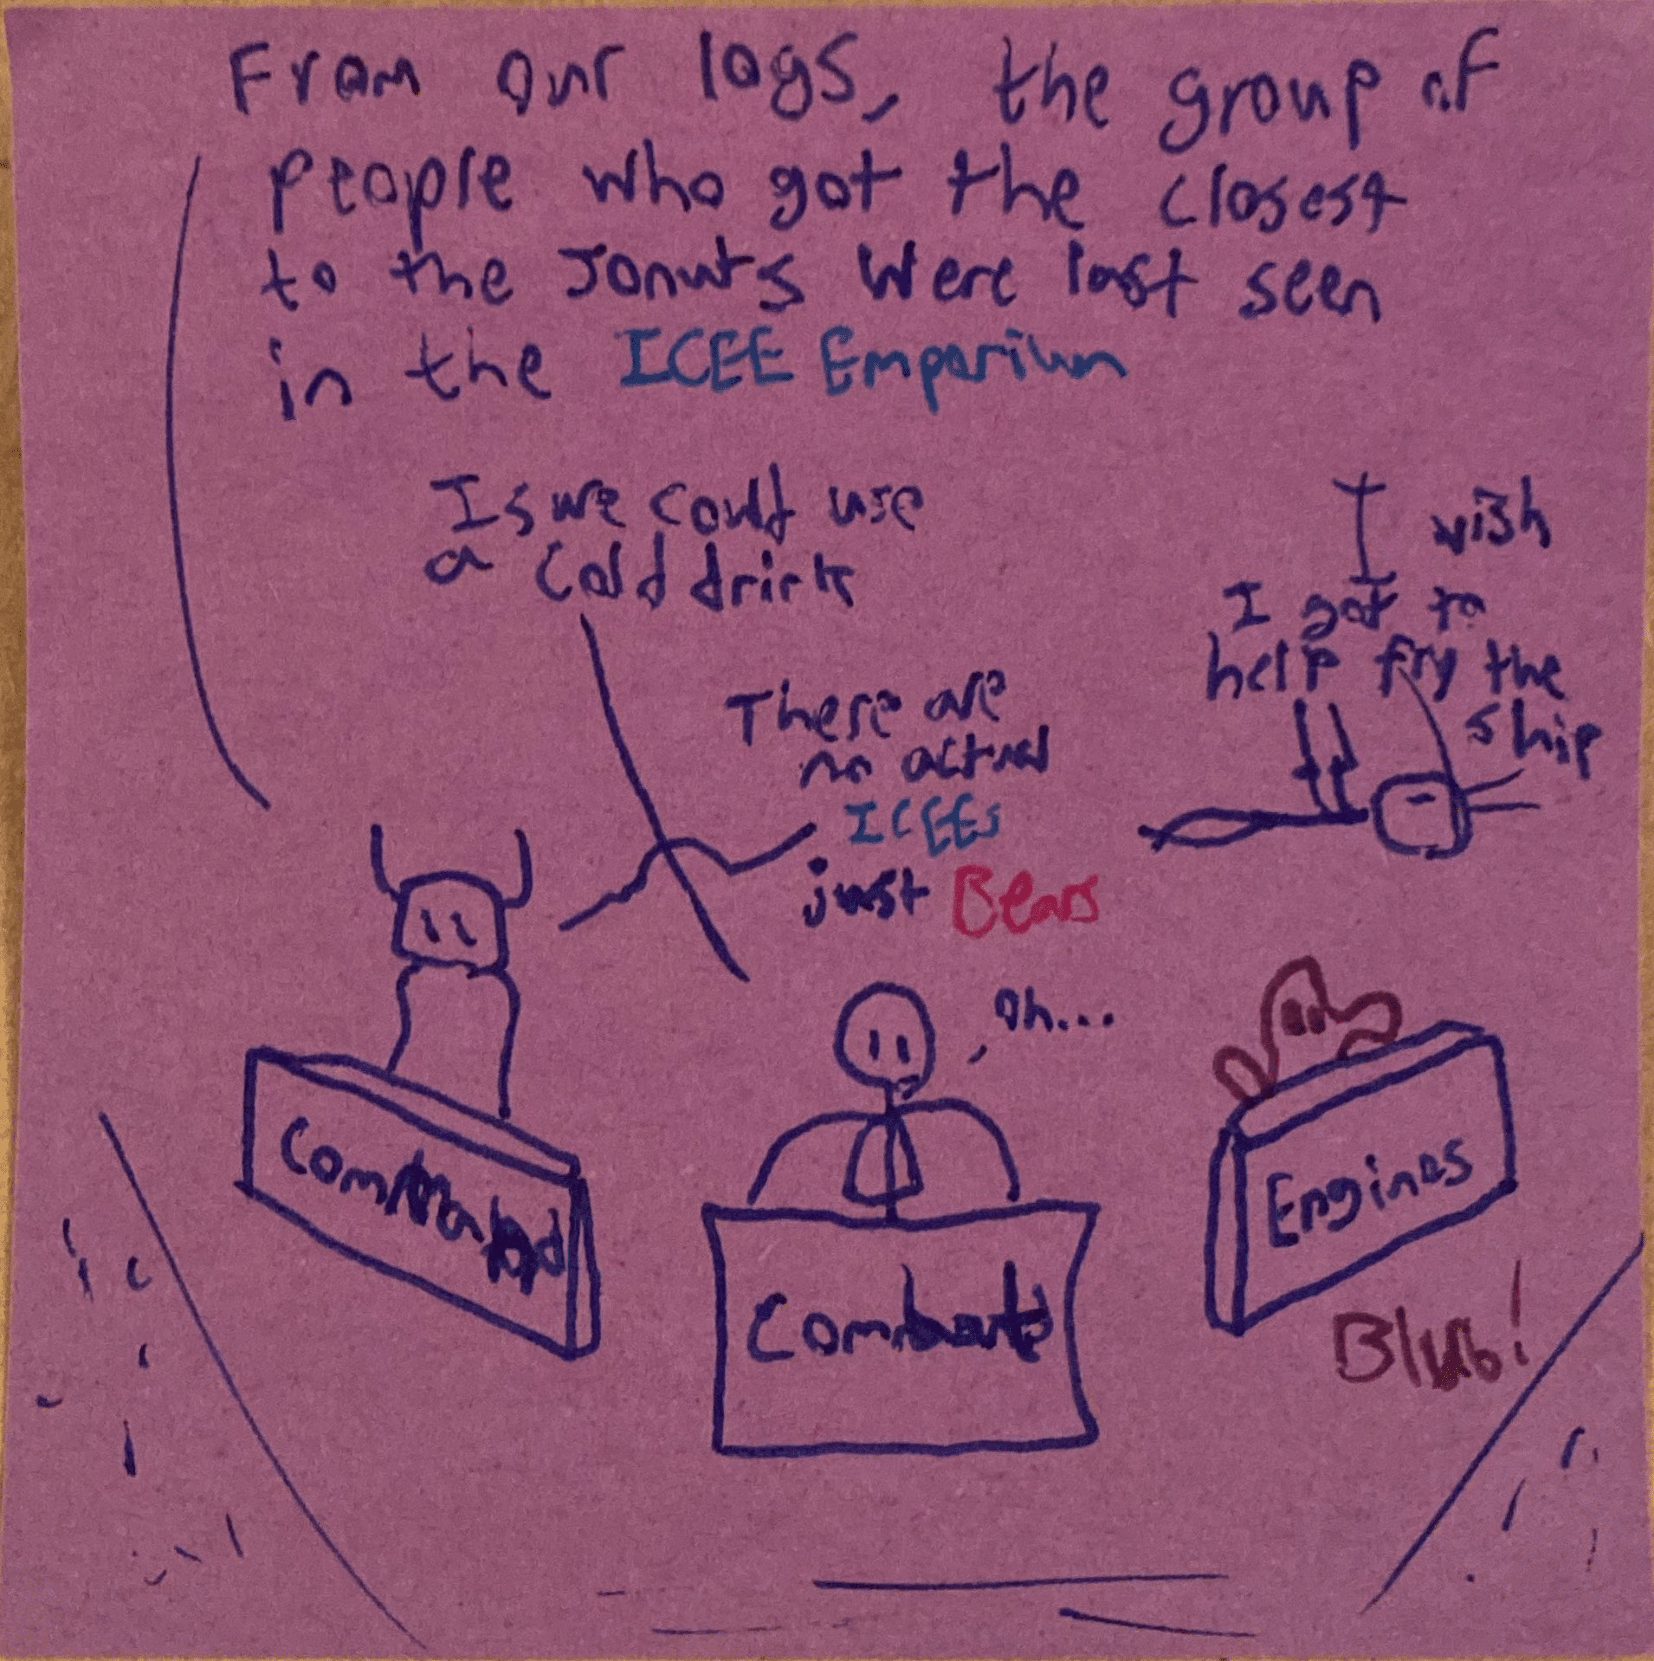 From our logs, the group of
people who got the closest
to the Jonuts were last seen
in the ICEE Emporium
Is we could use
a cold drink
There are
no actual
ICEEs
just Bears
Oh...
I wish
I got to
help fry the
ship
Command
Combat
Engines
Blub!